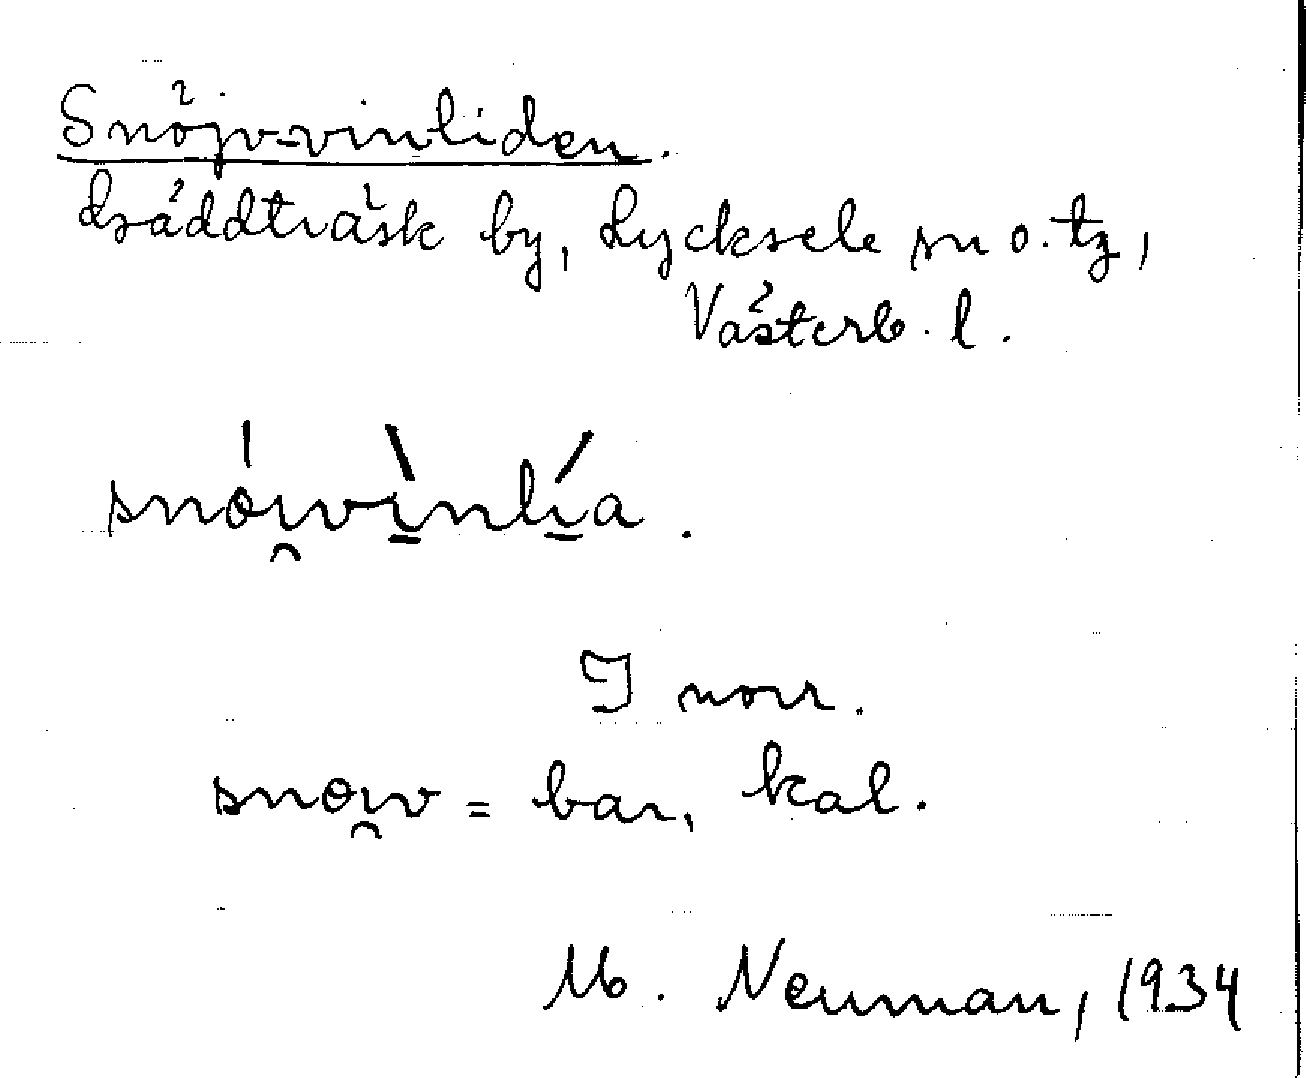 Snöjv-vinliden.
Gräddträsk by, Lycksele sn o. tg,
Västerb. l.
snöi̯vìnlía.
I norr.
snöi̯v = bar, kal.
M. Neuman, 1934